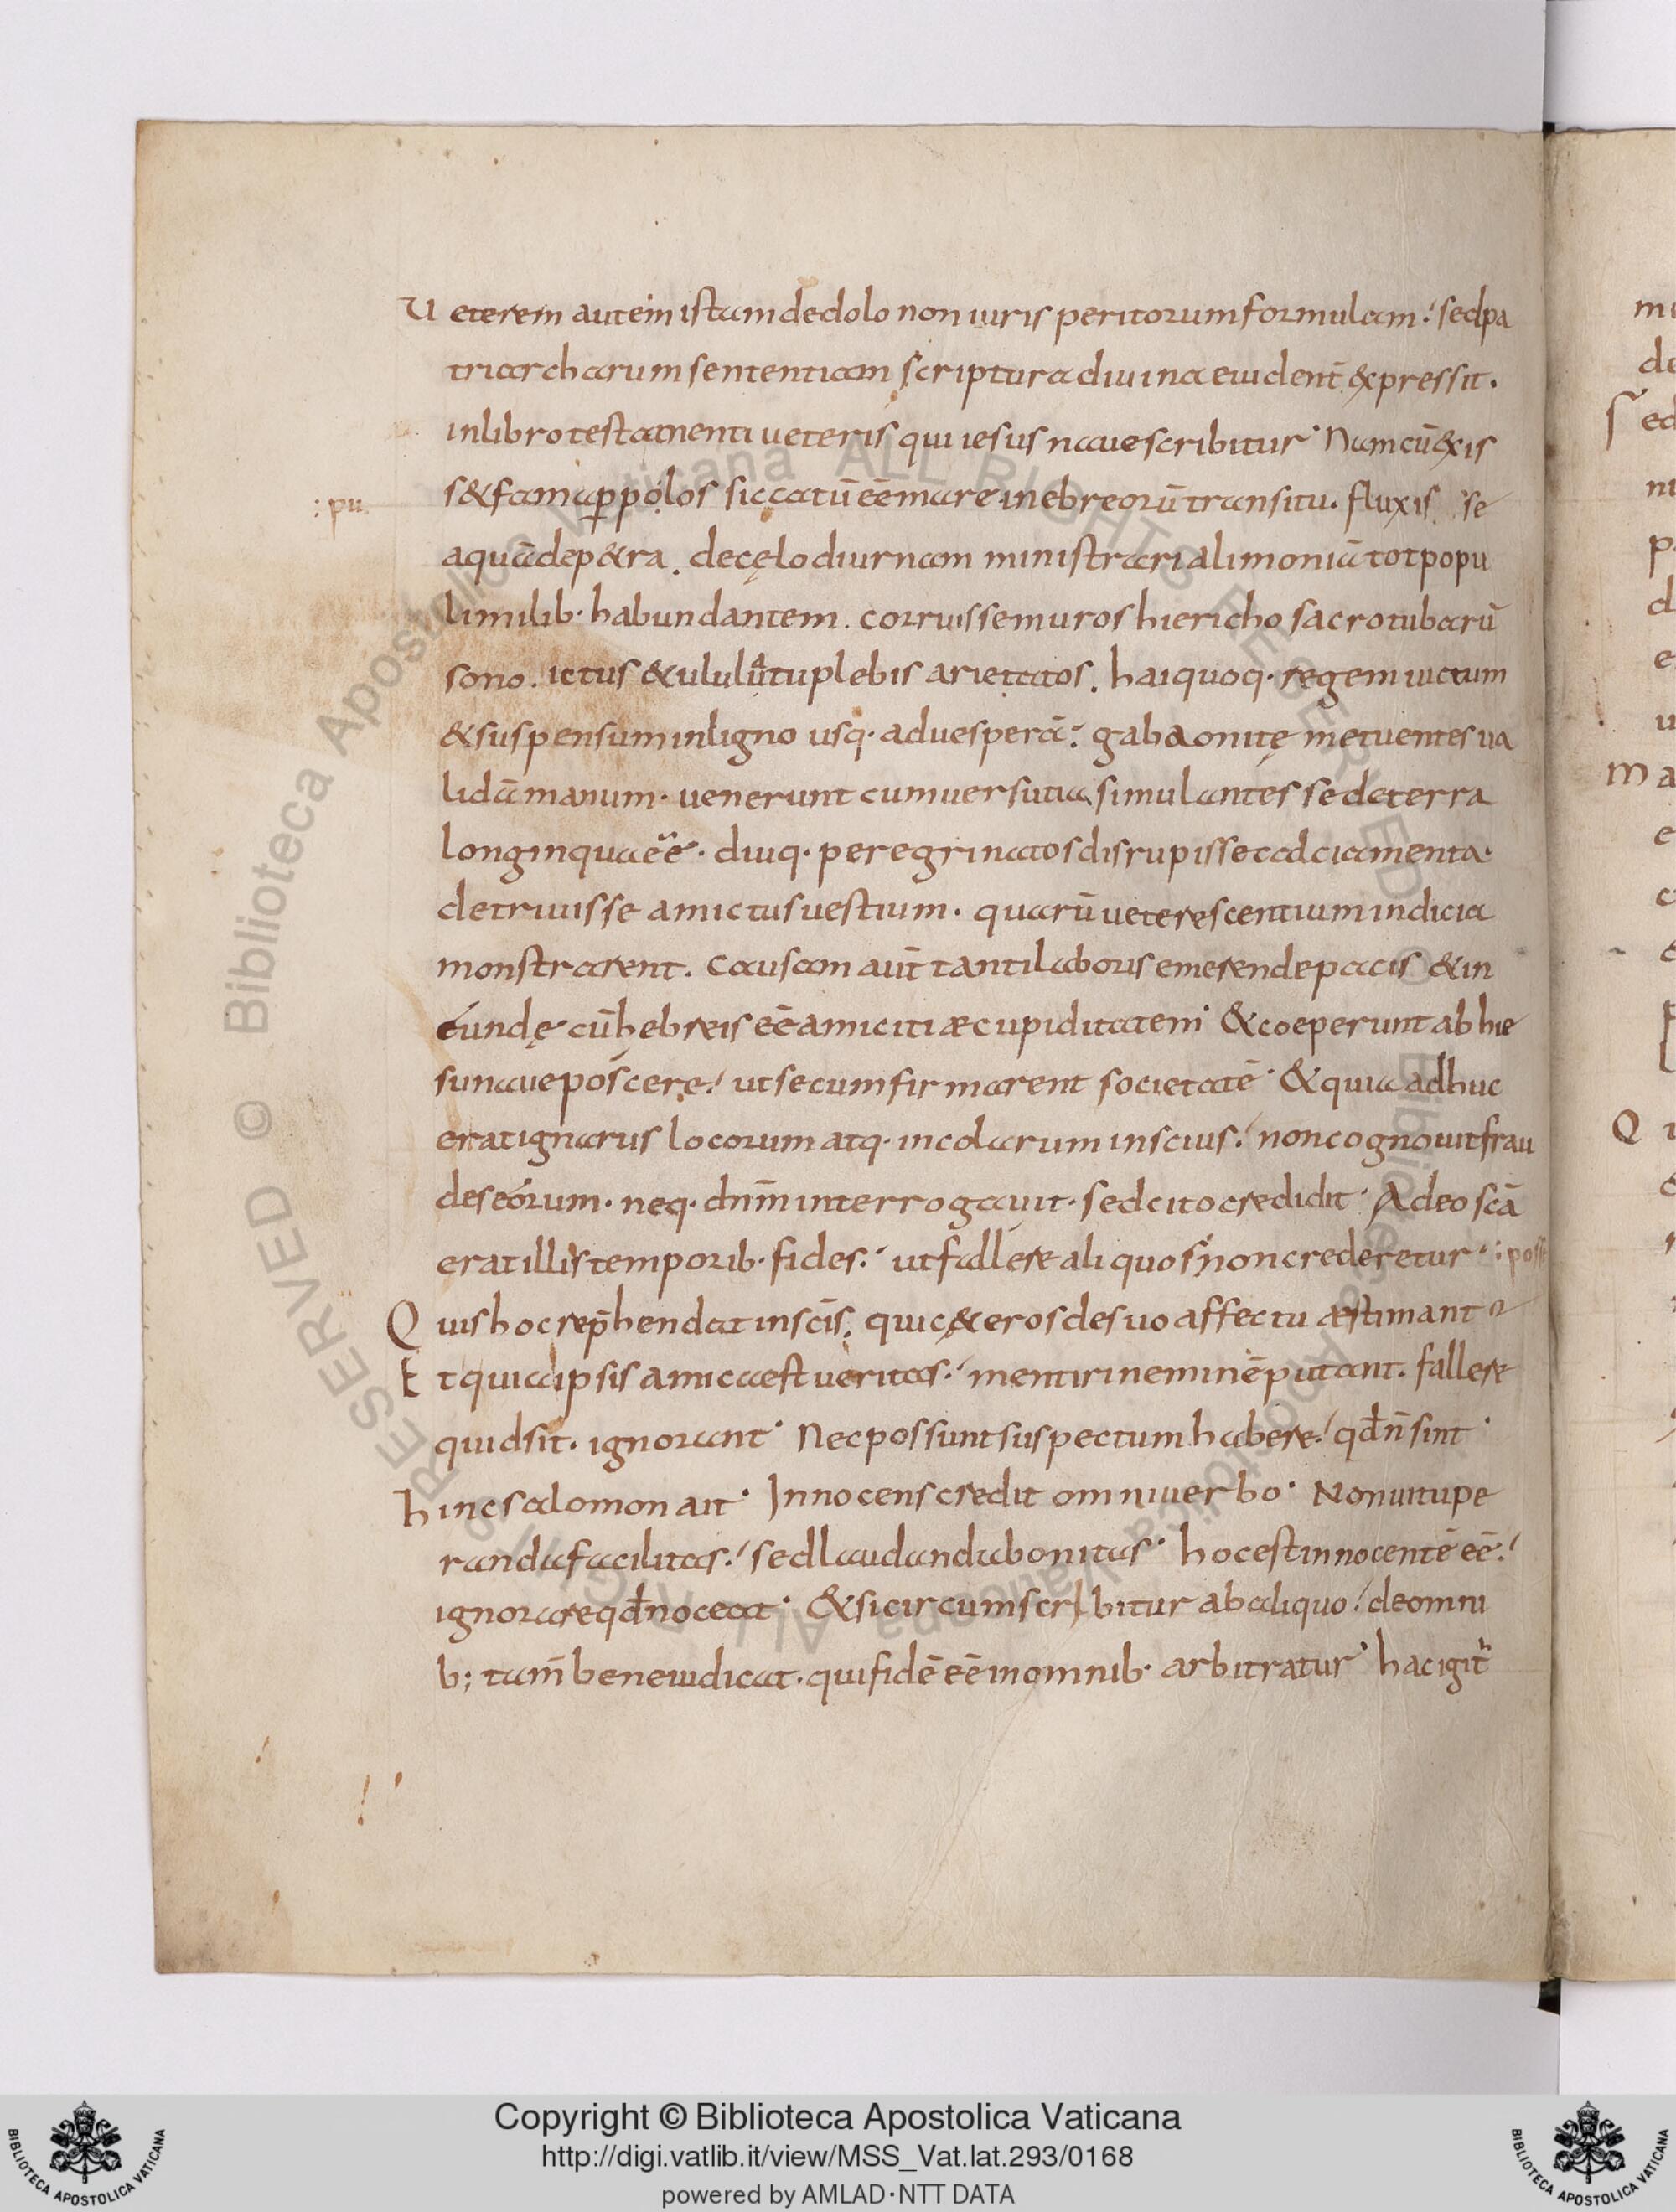 Ueterem autem istam de dolo non iuris peritorum formulam; sed pa
triarcharum sententiam scriptura diuina euident̄ &xpressit.
in libro testamenti ueteris qui iesus naue scribitur· Nam cū &xis
s& fama p̱ popolos siccatū eē mare in ebreorū transitu. fluxis se
:pu
aquā de p&ra. de cęlo diurnam ministrari alimoniā tot popu
li milib· habundantem. corruisse muros hiericho sacro tubarū
sono. ictus & ululatu plebis arietatos. hai quoq· regem uictum
& suspensum in ligno usq· ad uesperā; gabaonitę metuentes ua
lidā manum· uenerunt cum uersutia simulantes se de terra
longinqua eē· diuq· peregrinatos disrupisse calciamenta·
detriuisse amictus uestium. quarū ueterescentium indicia
monstrarent. causam aut̄ tanti laboris emerende pacis & in
eundę cū hebreis eē amicitiæ cupiditatem· & coeperunt ab hie
su naue poscere; ut secum firmarent societatē· & quia adhuc
erat ignarus locorum atq· incolarum inscius; non cognouit frau
des eorum. neq· dn̄m interrogauit· sed cito credidit· Adeo scā
erat illis temporib· fides; ut fallere aliquos non crederetur· :posse
Quis hoc rep̄hendat in scīs, qui c&eros de suo affectu æstimant
Et quia ipsis amica est ueritas; mentiri neminē putant. fallere
quid sit. ignorant· Nec possunt suspectum habere; qđ n̄ sint·
hinc salomon ait· Innocens credit omni uerbo· Non uitupe
randa facilitas; sed laudanda bonitas· hoc est innocentē eē;
ignorare qđ noceat· & si circumscribitur ab aliquo; de omni
b; tam̄ bene iudicat. qui fidē eē in omnib· arbitratur· hac igit̄
Copyright © Biblioteca Apostolica Vaticana
http://digi.vatlib.it/view/MSS_Vat.lat.293/0168
powered by AMLAD·NTT DATA
BIBLIOTECA APOSTOLICA VATICANA
BIBLIOTECA APOSTOLICA VATICANA